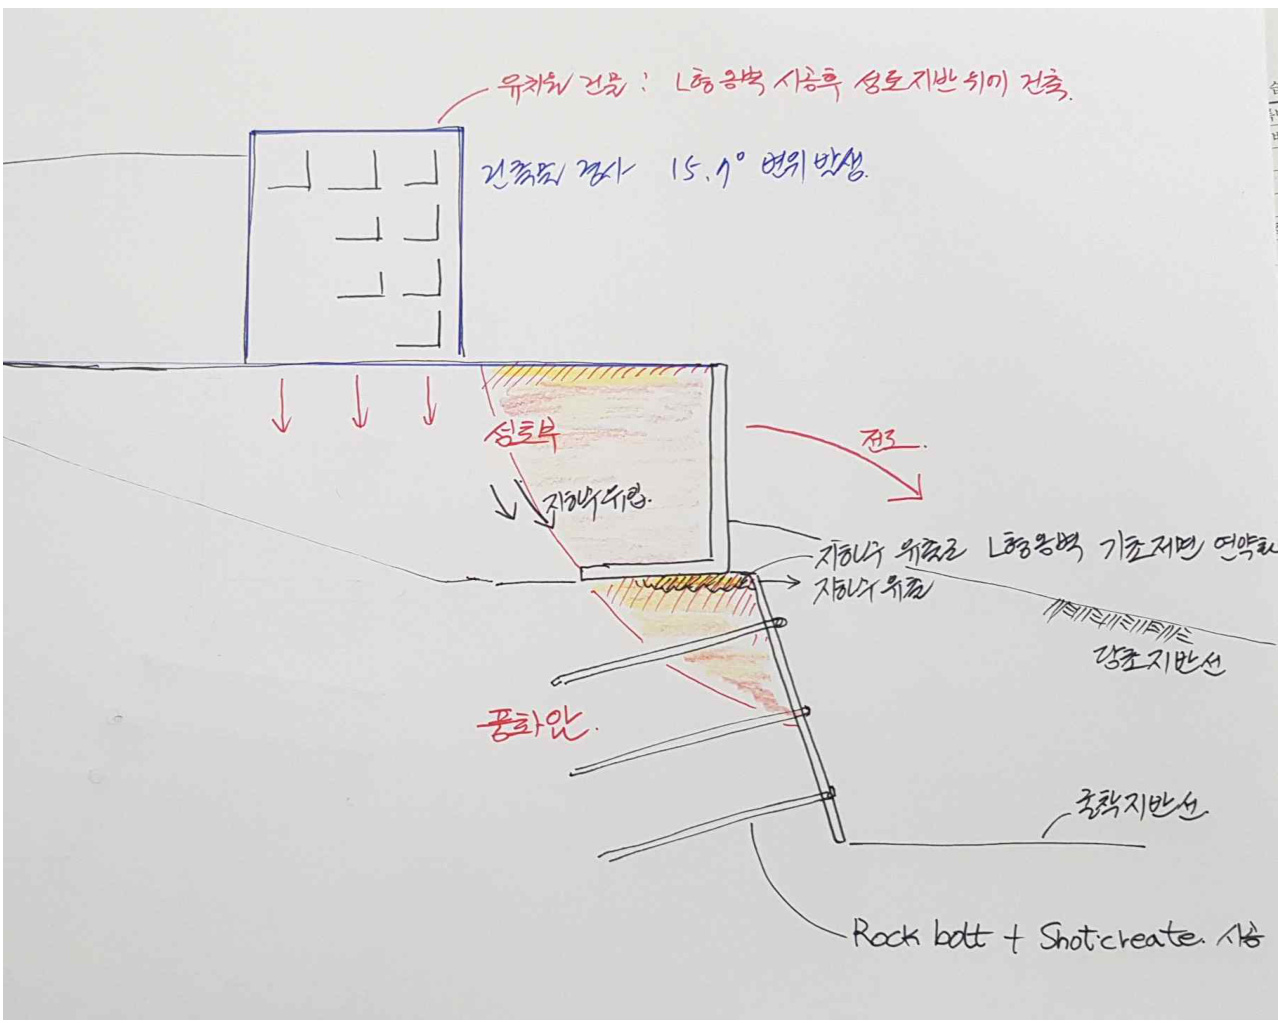 유치원 건물 : L형옹벽 시공후 성토지반 위에 건축.
건축물 경사 15.7° 변위발생.
성토부
전도.
지하수위압.
지하수 유출로 L형옹벽 기초저면 연약화
지하수유출
당초지반선
풍화암.
굴착지반선
Rock bolt + Shot.create. 시공